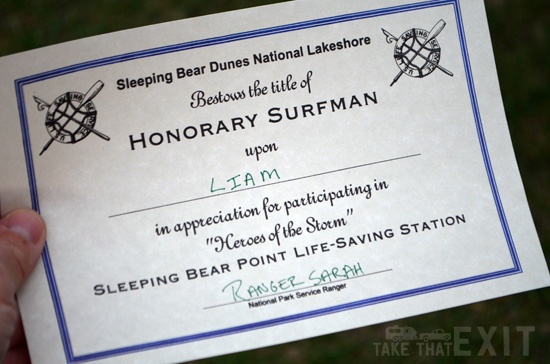 Sleeping Bear Dunes National Lakeshore
Bestows the title of
HONORARY SURFMAN
upon
LIAM
in appreciation for participating in
"Heroes of the Storm"
SLEEPING BEAR POINT LIFE-SAVING STATION
RANGER SARAH
National Park Service Ranger
TAKE THAT EXIT